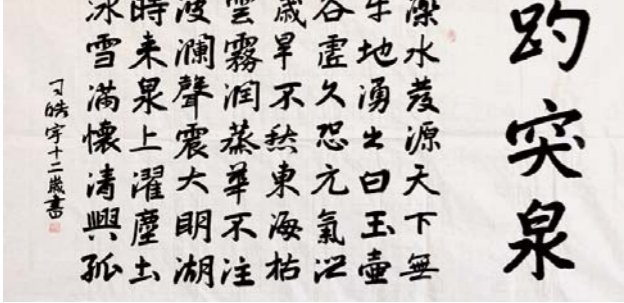 趵突泉
濼水發源天下無
平地湧出白玉壺
谷虛久恐元氣泄
歲旱不愁東海枯
雲霧潤蒸華不注
波瀾聲震大明湖
時來泉上濯塵土
冰雪滿懷清興孤
刁皓宇十二歲書